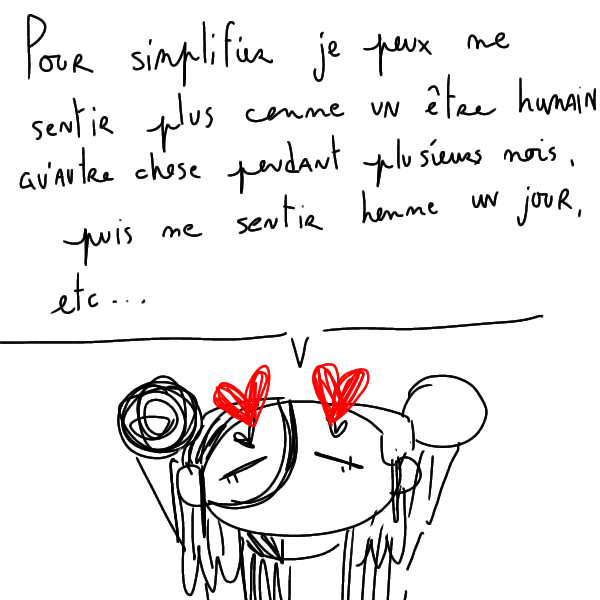 Pour simplifier je peux me
sentir plus comme un être humain
qu'autre chose pendant plusieurs mois,
puis me sentir homme un jour,
etc...